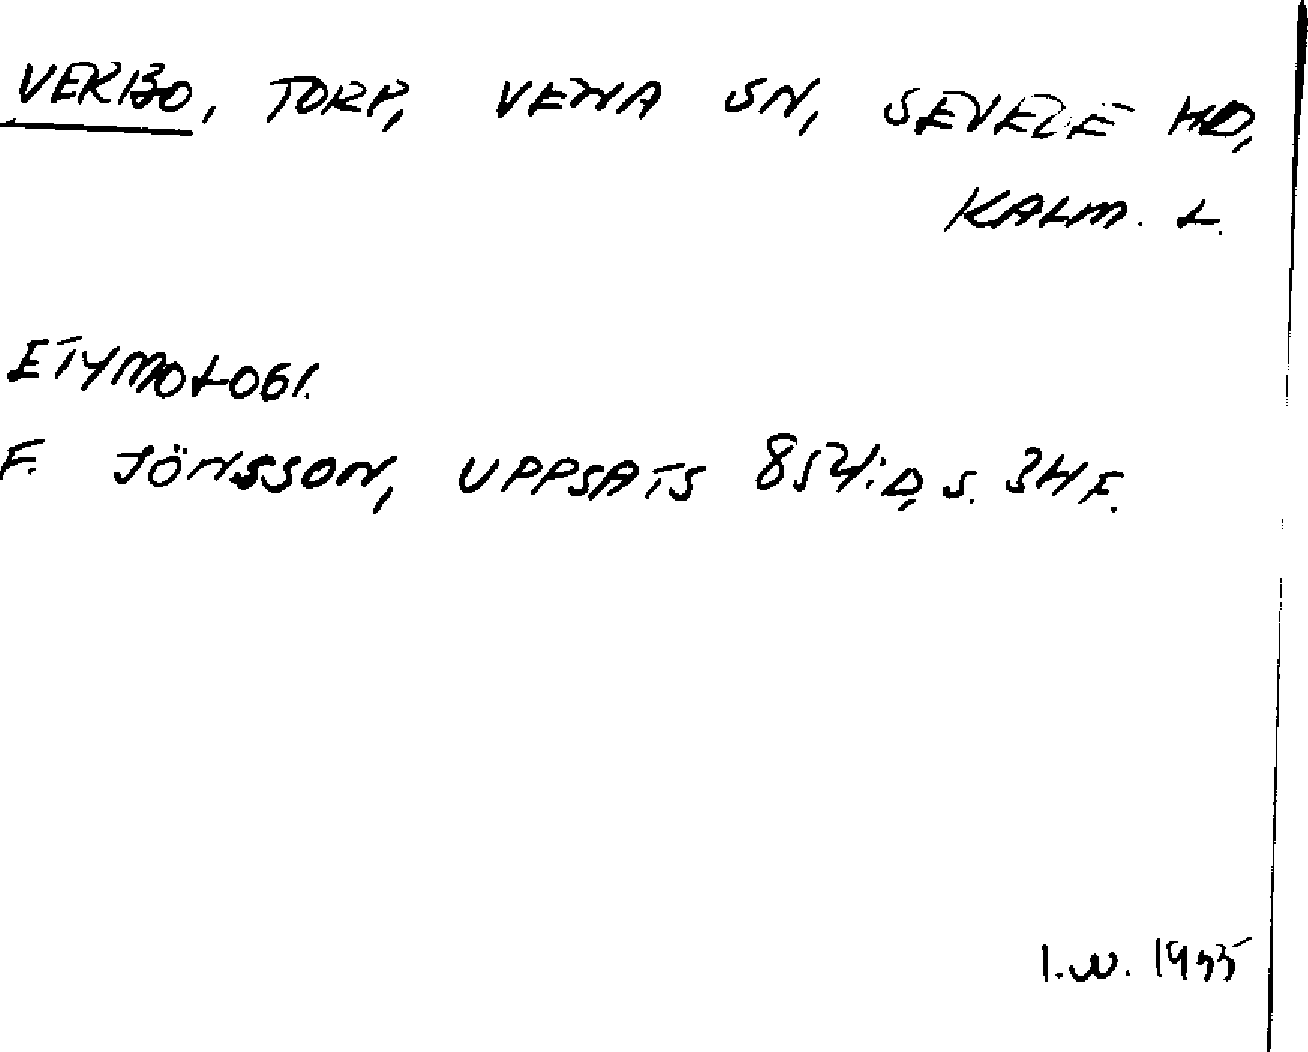 VERBO, TORP, VENA SN, SEVEDE HD,
KALM. L.
ETYMOLOGI.
F. JÖNSSON, UPPSATS 854:D, S. 34 F.
I.W. 1955